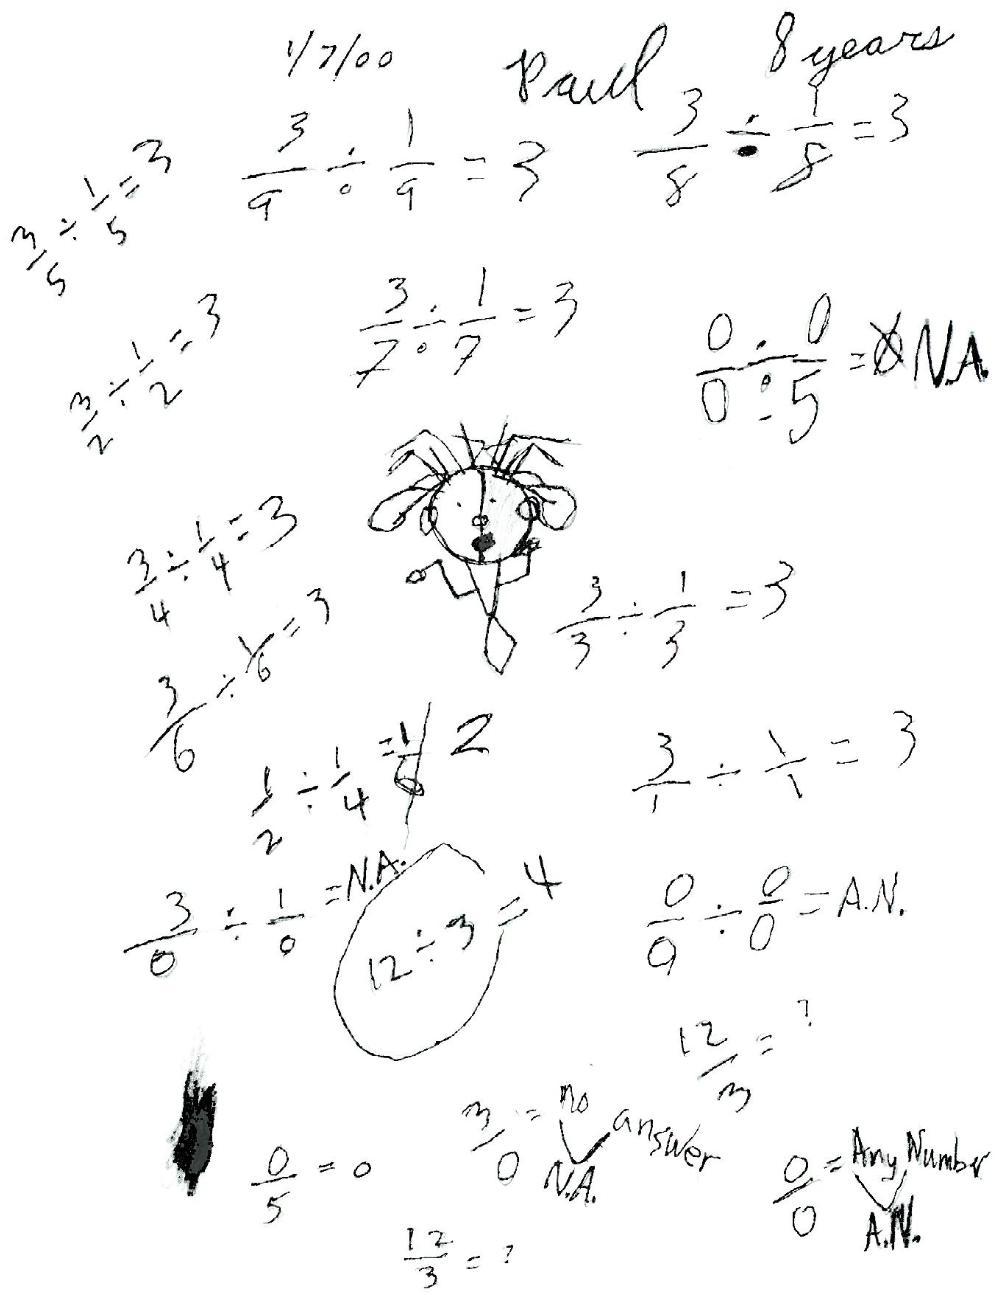 1/7/00 Paul 8 years
3/5 ÷ 1/5 = 3
3/9 ÷ 1/9 = 3
3/8 ÷ 1/8 = 3
3/2 ÷ 1/2 = 3
3/7 ÷ 1/7 = 3
0/0 ÷ 0/5 = N.A.
3/4 ÷ 1/4 = 3
3/6 ÷ 1/6 = 3
3/3 ÷ 1/3 = 3
1/2 ÷ 1/4 = 2
3/1 ÷ 1/1 = 3
3/0 ÷ 1/0 = N.A.
12 ÷ 3 = 4
0/9 ÷ 0/0 = A.N.
12/3 = ?
0/5 = 0
3/0 = no answer
N.A.
0/0 = Any Number
A.N.
12/3 = ?